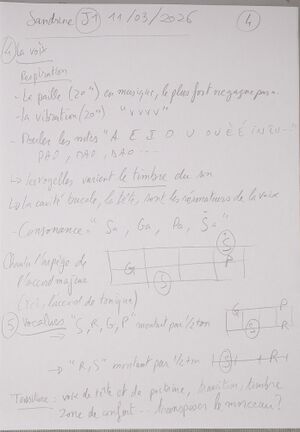 Sandrine J1 11/03/2026 4
4 La voix
Respiration
- La paille (20") en musique, le plus fort ne gagne pas
- La vibration (20") : "vvvv"
- les notes "A E I O U OU È É IN EU..."
PAO, MAO, BAO ...
→ les voyelles varient le timbre du son
↳ la cavité bucale, la tête, sont les résonateurs de la voix
- Consonance "Sa, Ga, Pa, Ṡa"
Chanter l'arpège de
l'accord majeur
(ici, l'accord de tonique)
G S P Ṡ
5 Vocalises "S, R, G, P" montant par 1/2 ton
G P S R
→ "R, S" montant par 1/2 ton
S R
Tessiture : voix de tête et de poitrine, transition, timbre
zone de confort... transposer le morceau ?